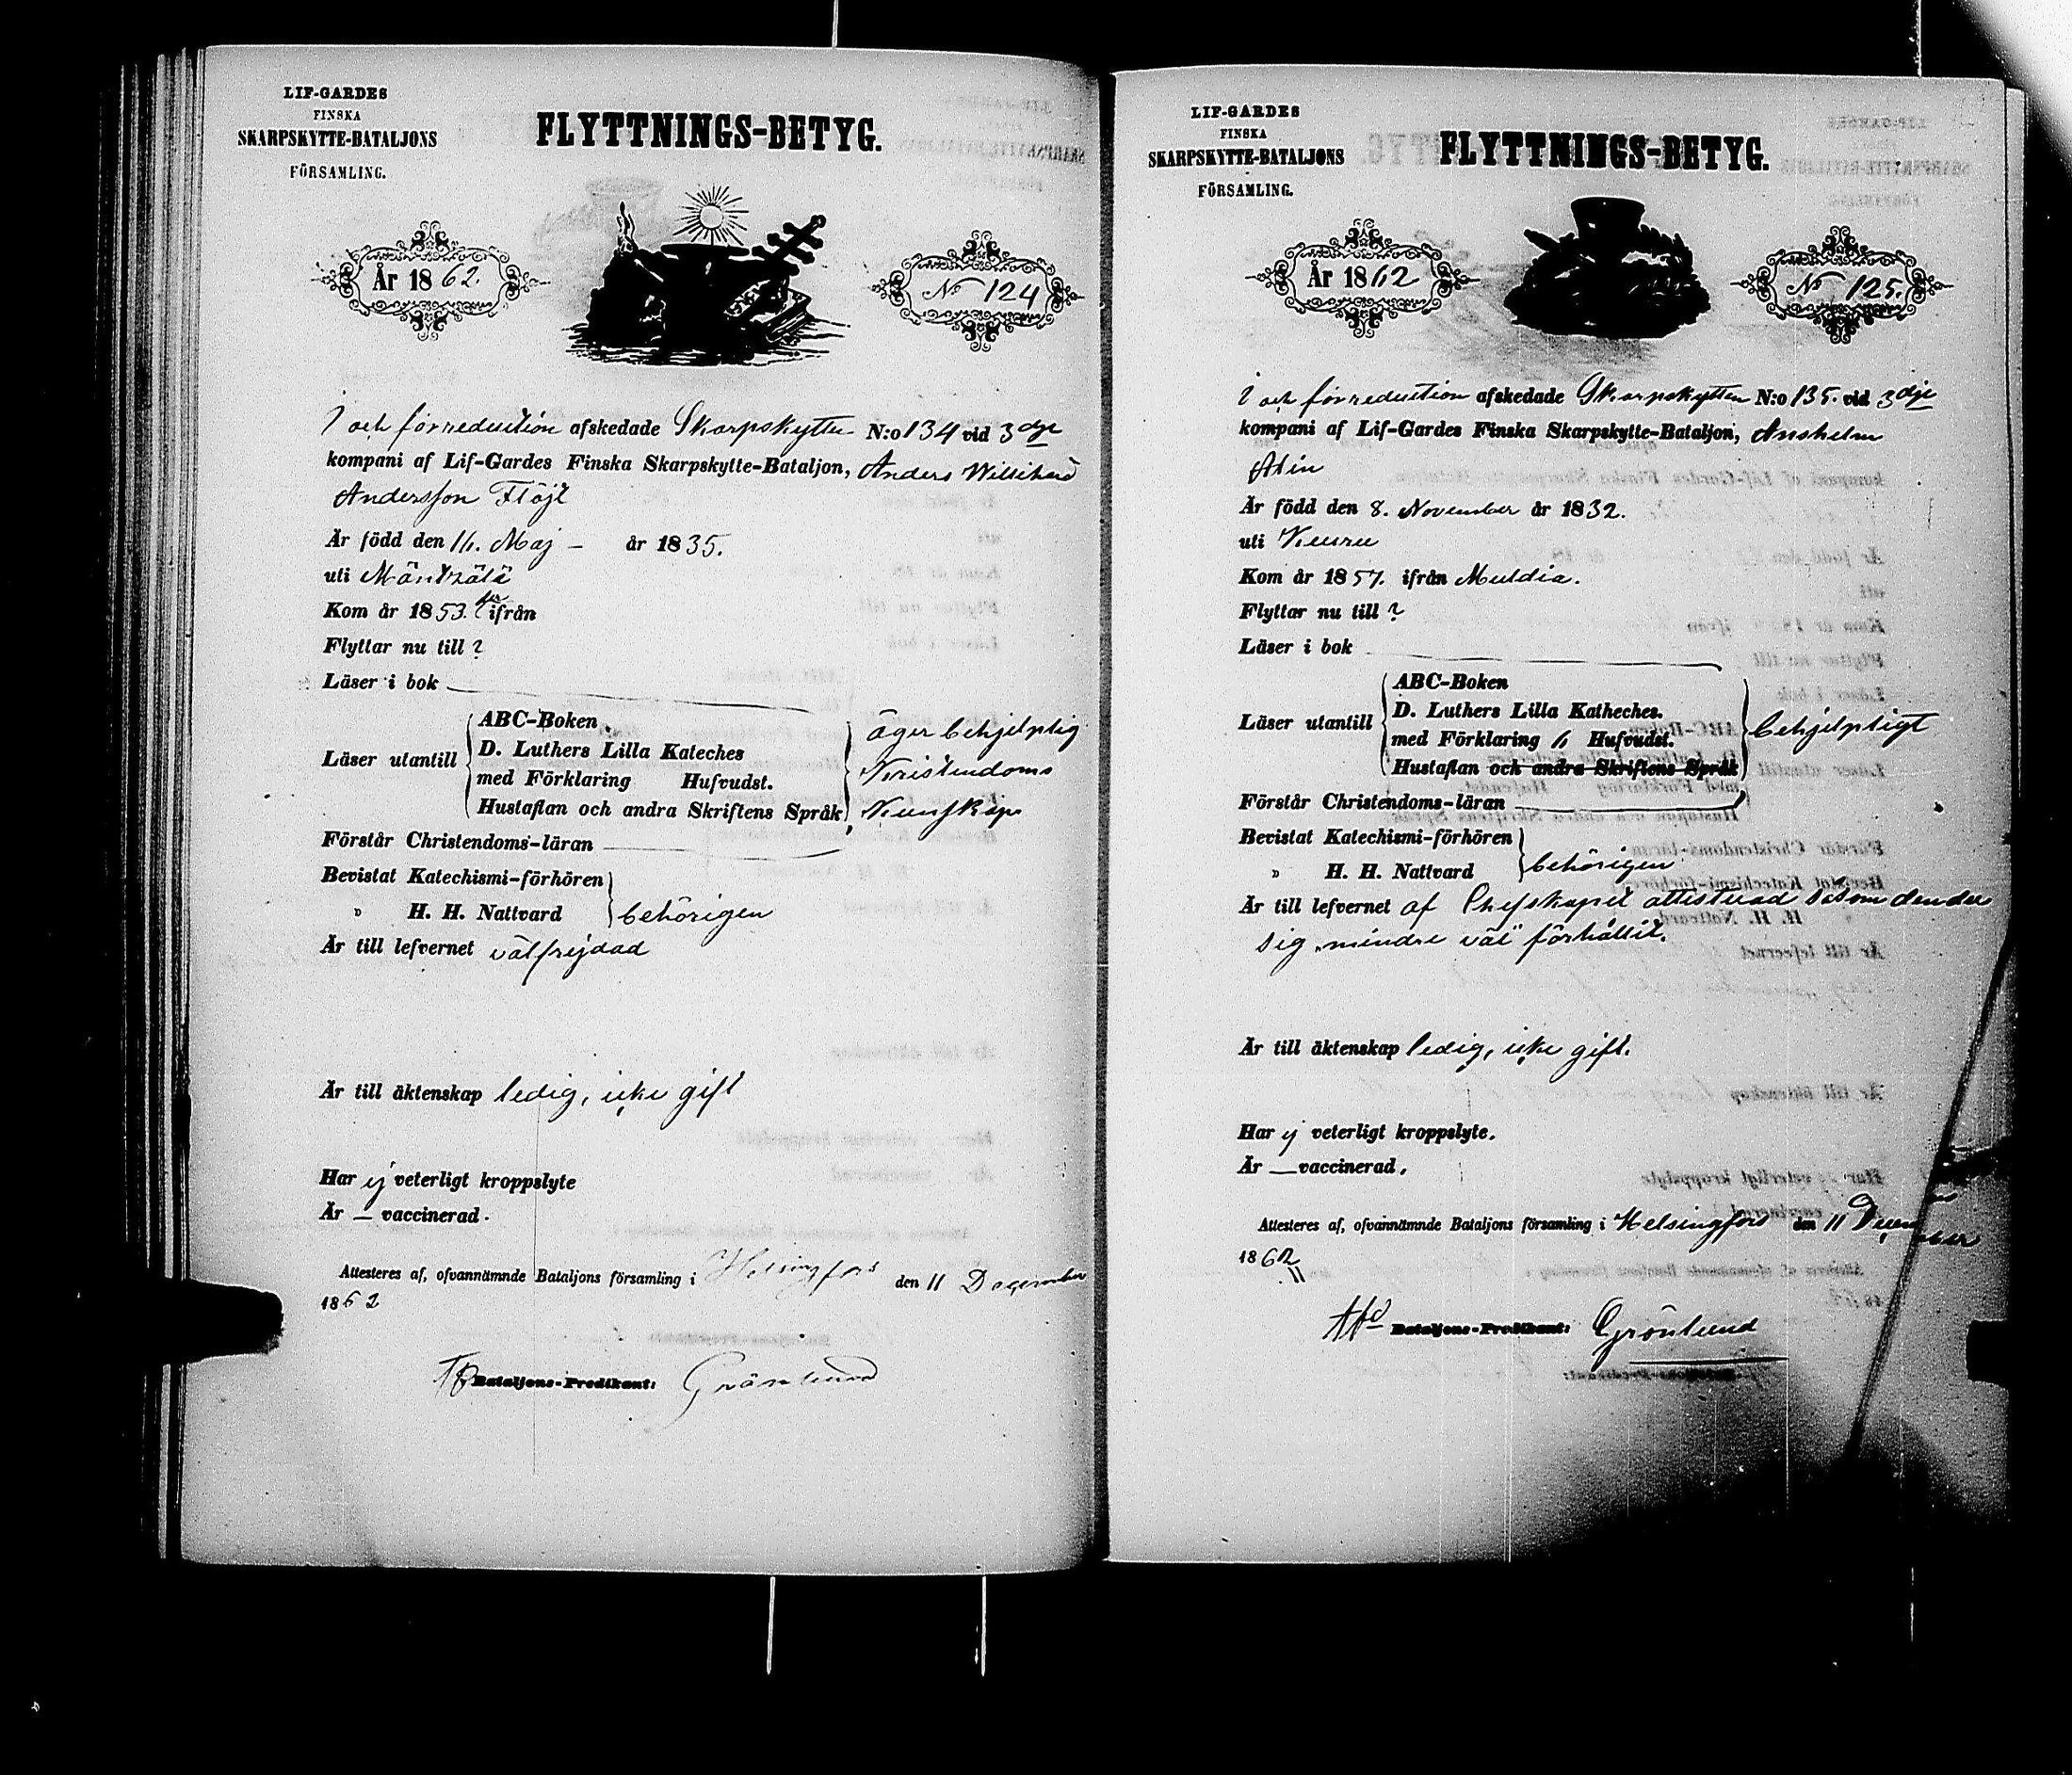 LIF-GARDES
FINSKA
SKARPSKYTTE-BATALJONS
FÖRSAMLING.
FLYTTNINGS-BETYG.
År 1862.
No 124
I och för reduction afskedade Skarpskytten N:o 134 vid 3dje
kompani af Lif-Gardes Finska Skarpskytte-Bataljon, Anders Willihard
Andersson Flöjt
Är född den 16. Maj - år 1835.
uti Mäntzälä
Kom år 1853. ifrån
Flyttar nu till ?
Läser i bok
Läser utantill
ABC-Boken
D. Luthers Lilla Kateches
med Förklaring Hufvudst.
Hustaflan och andra Skriftens Språk,
äger behjelplig
Kristendoms
Kunskap
Förstår Christendoms-läran
Bevistat Katechismi-förhören
" H. H. Nattvard
behörigen
Är till lefvernet välfrejdad
Är till äktenskap ledig, icke gift
Har ej veterligt kroppslyte
Är — vaccinerad.
Attesteres af, ofvannämnde Bataljons församling i Helsingfors den 11 December
1862
Bataljons-Predikant: Grönlund
LIF-GARDES
FINSKA
SKARPSKYTTE-BATALJONS
FÖRSAMLING.
FLYTTNINGS-BETYG.
År 1862
No 125.
I och för reduction afskedade Skarpskytten N:o 135. vid 3dje
kompani af Lif-Gardes Finska Skarpskytte-Bataljon, Anshelm
Alin
Är född den 8. November år 1832.
uti Keuru
Kom år 1857. ifrån Multia.
Flyttar nu till ?
Läser i bok
Läser utantill
ABC-Boken
D. Luthers Lilla Katheches.
med Förklaring 6 Hufvudst.
Hustaflan och andra Skriftens Språk
behjelpligt
Förstår Christendoms-läran
Bevistat Katechismi-förhören
" H. H. Nattvard
behörigen
Är till lefvernet af Chefskapet attesterad såsom den der
sig „mindre väl" förhållit.
Är till äktenskap ledig, icke gift.
Har ej veterligt kroppslyte.
Är — vaccinerad.
Attesteres af, ofvannämnde Bataljons församling i Helsingfors den 11 December
1862
Bataljons-Predikant: Grönlund